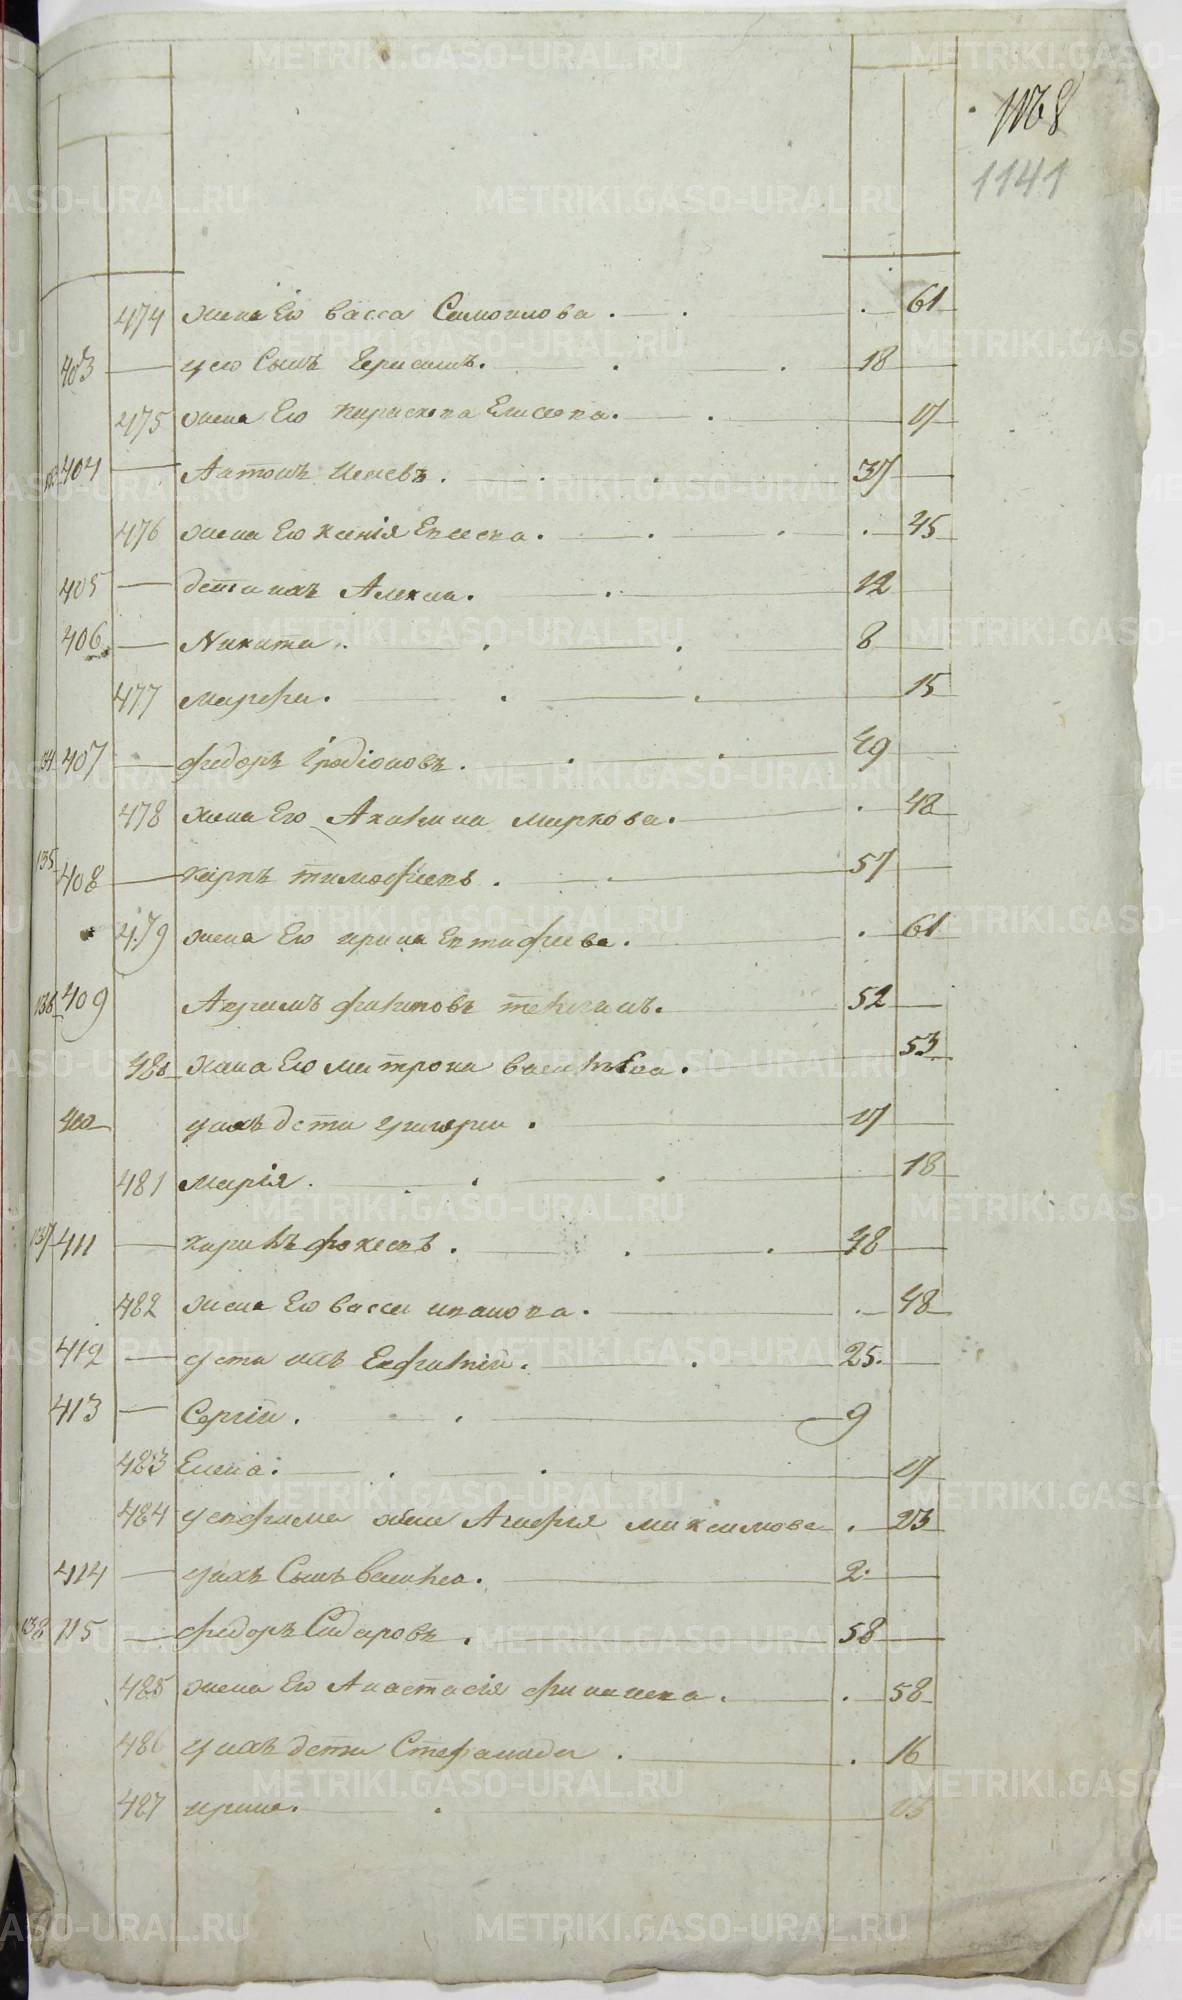 1141
474 жена Ево васса Самоилова . . . 61
403 у ево Сынъ Герасимъ. . . 18
475 жена Ево параскева Елисеева. . 17
404 Антонъ Исаевъ . . . 37
476 жена Ево Ксенія Евсеева . . . . 45
405 дети ихъ Алексеи. . 12
406 Никита . . . 8
477 марфа. . . 15
407 федоръ Іродіоновъ . . . 49
478 жена Ево Акилина маркова. . 48
135 408 карпъ тимофеевъ . . 57
479 жена Ево ирина Евтифиева. . 61
136 409 филиповъ 52
480 жена Ево матрона василева . 53
410 у ихъ дети григореи . 17
481 марія . . . 18
137 411 кирилъ фокеевъ . . . 48
482 жена Ево васса иванова . . 48
412 дети ихъ . . 25.
413 Сергіи . . 9
483 Елена . . . 17
484 жена Агафья максимова . 23
414 у ихъ Сынъ василеи . 2.
138 115 федоръ Сидаровъ . 58
485 жена Ево Анастасія . . 58
486 у ихъ дети Стефанида . . 16
487 ирина. . 13